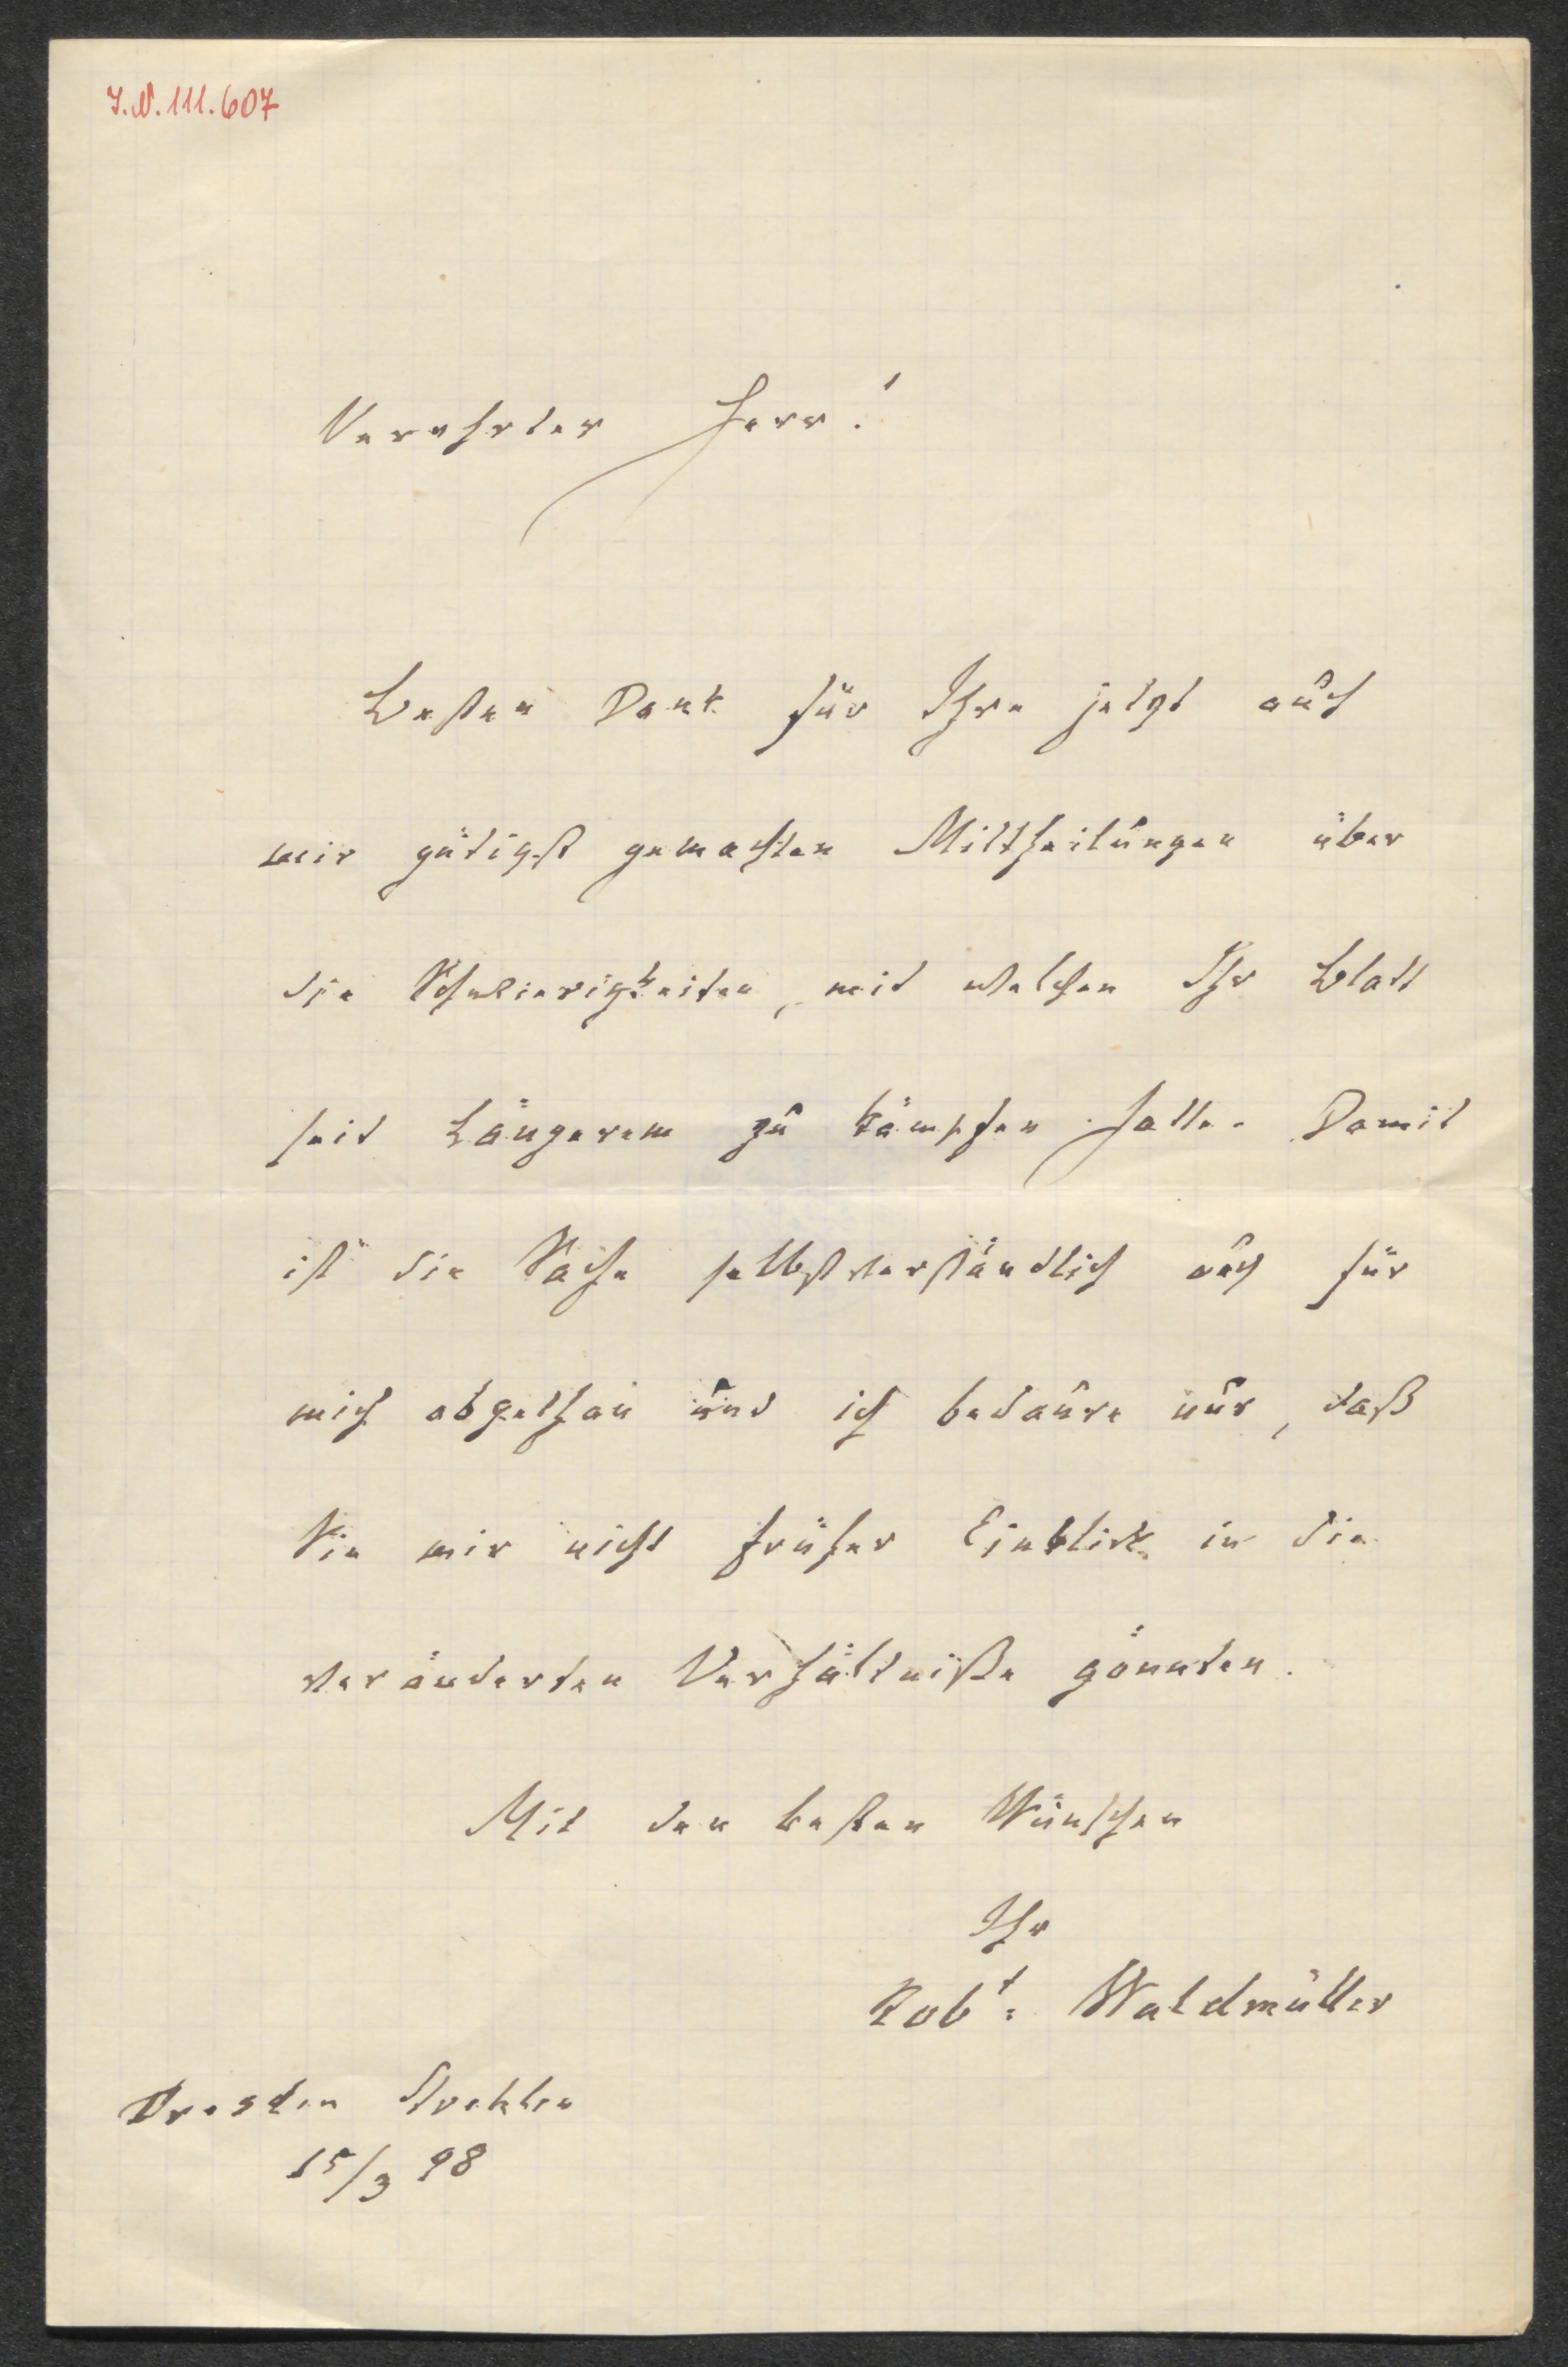 J.N. 111.607
Verehrter Herr!
Besten Dank für Ihre jetzt auch
mir gütigst gemachten Mittheilungen über
die Schwierigkeiten, mit welchen Ihr Blatt
seit Längerem zu kämpfen hatte. Damit
ist die Sache selbstverständlich auch für
mich abgethan und ich bedaure nur, daß
Sie mir nicht früher Einblick in die
veränderten Verhältniße gönnten.
Mit den besten Wünschen
Ihr
Robt: Waldmüller
Dresden Strehlen
15/3 98